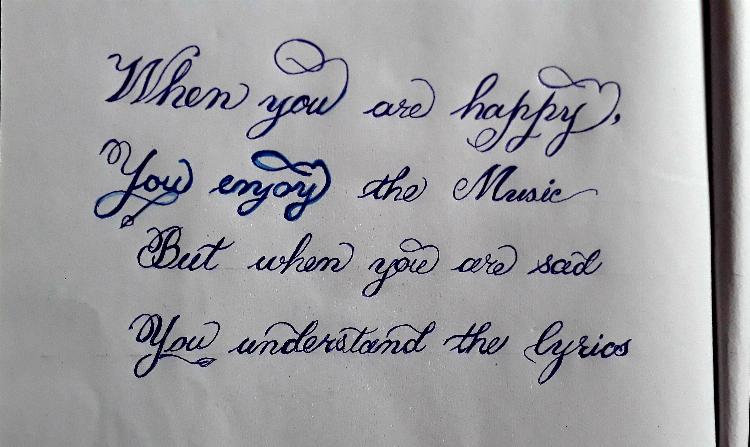 When you are happy,
You enjoy the Music
But when you are sad
You understand the lyrics